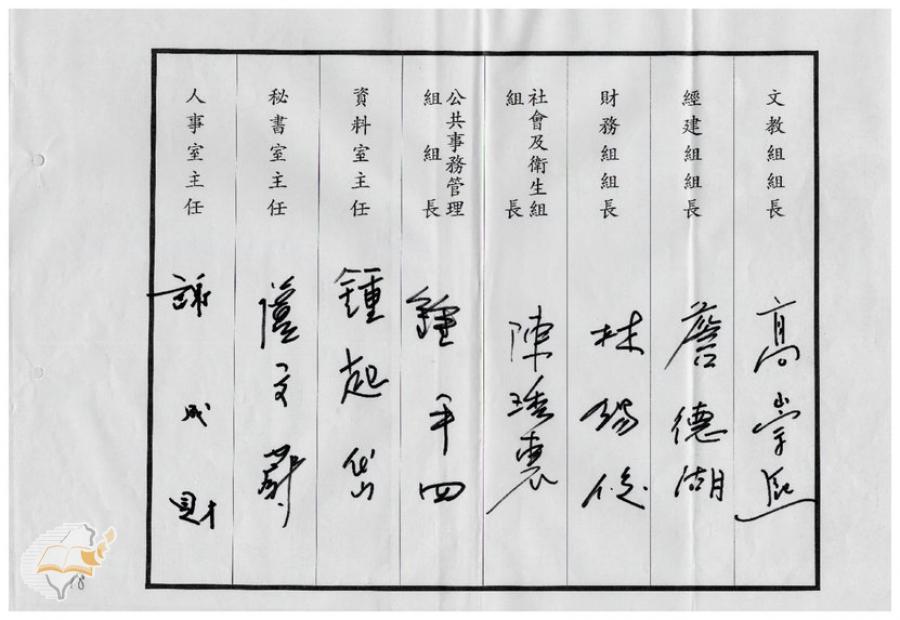 文教組組長
高崇熙
經建組組長
詹德湖
財務組組長
林錫俊
社會及衛生組
組長
陳琇裏
公共事務管理
組組長
鍾平四
資料室主任
鍾起岱
秘書室主任
文
人事室主任
謝成財